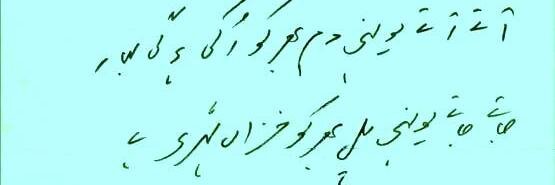 آتے آتے یونہی دم بھر کو رکی ہوگی بہار
جاتے جاتے یونہی پل بھر کو خزاں ٹھہری ہے